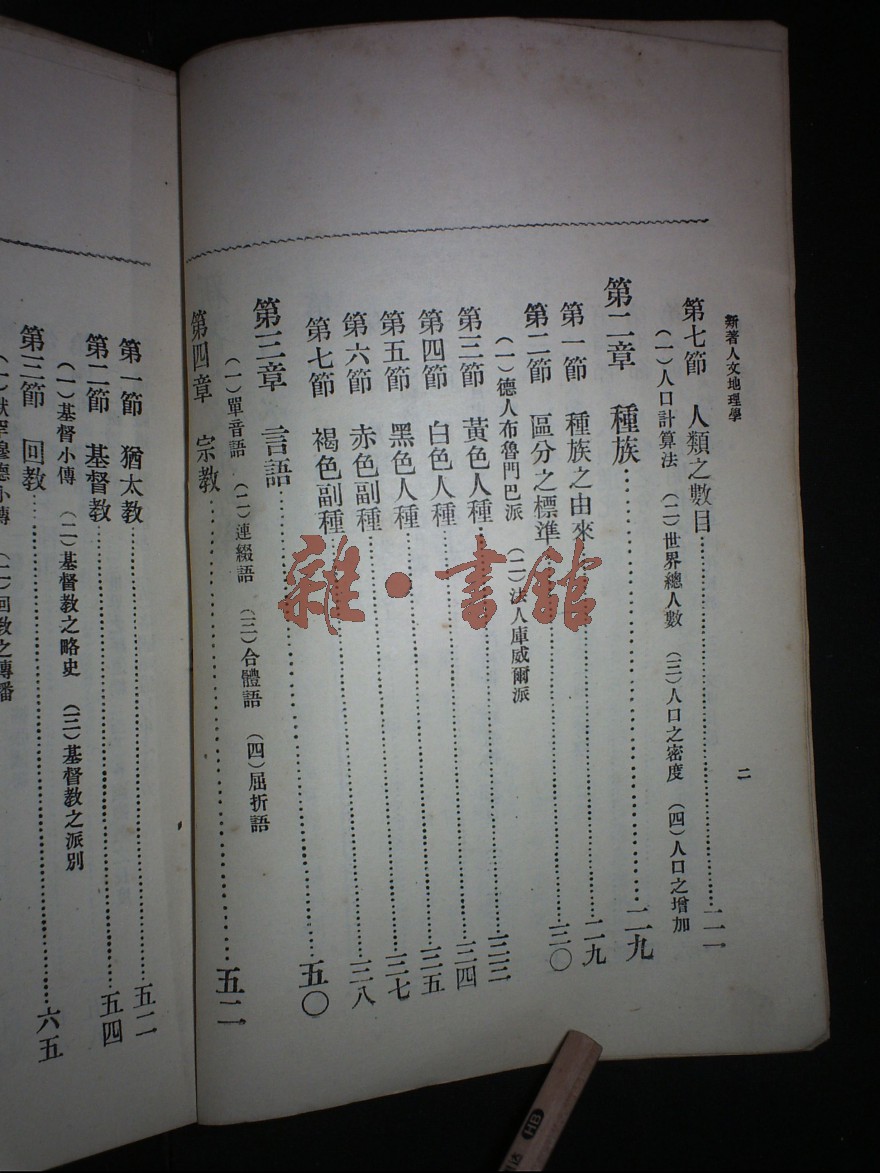 新著人文地理學
二
第七節　人類之數目……二一
(一)人口計算法　(二)世界總人數　(三)人口之密度　(四)人口之增加
第二章　種族……二九
第一節　種族之由來……二九
第二節　區分之標準……三〇
(一)德人布魯門巴派　(二)法人庫威爾派
第三節　黃色人種……三三
第四節　白色人種……三四
第五節　黑色人種……三五
第六節　赤色副種……三七
第七節　褐色副種……三八
第三章　言語……五〇
(一)單音語　(二)連綴語　(三)合體語　(四)屈折語
第四章　宗教……五二
第一節　猶太教……五二
第二節　基督教……五四
(一)基督小傳　(二)基督教之略史　(三)基督教之派別
第三節　回教……六五
罕穆德小傳　(二)回教之傳播
雜·書館
HB